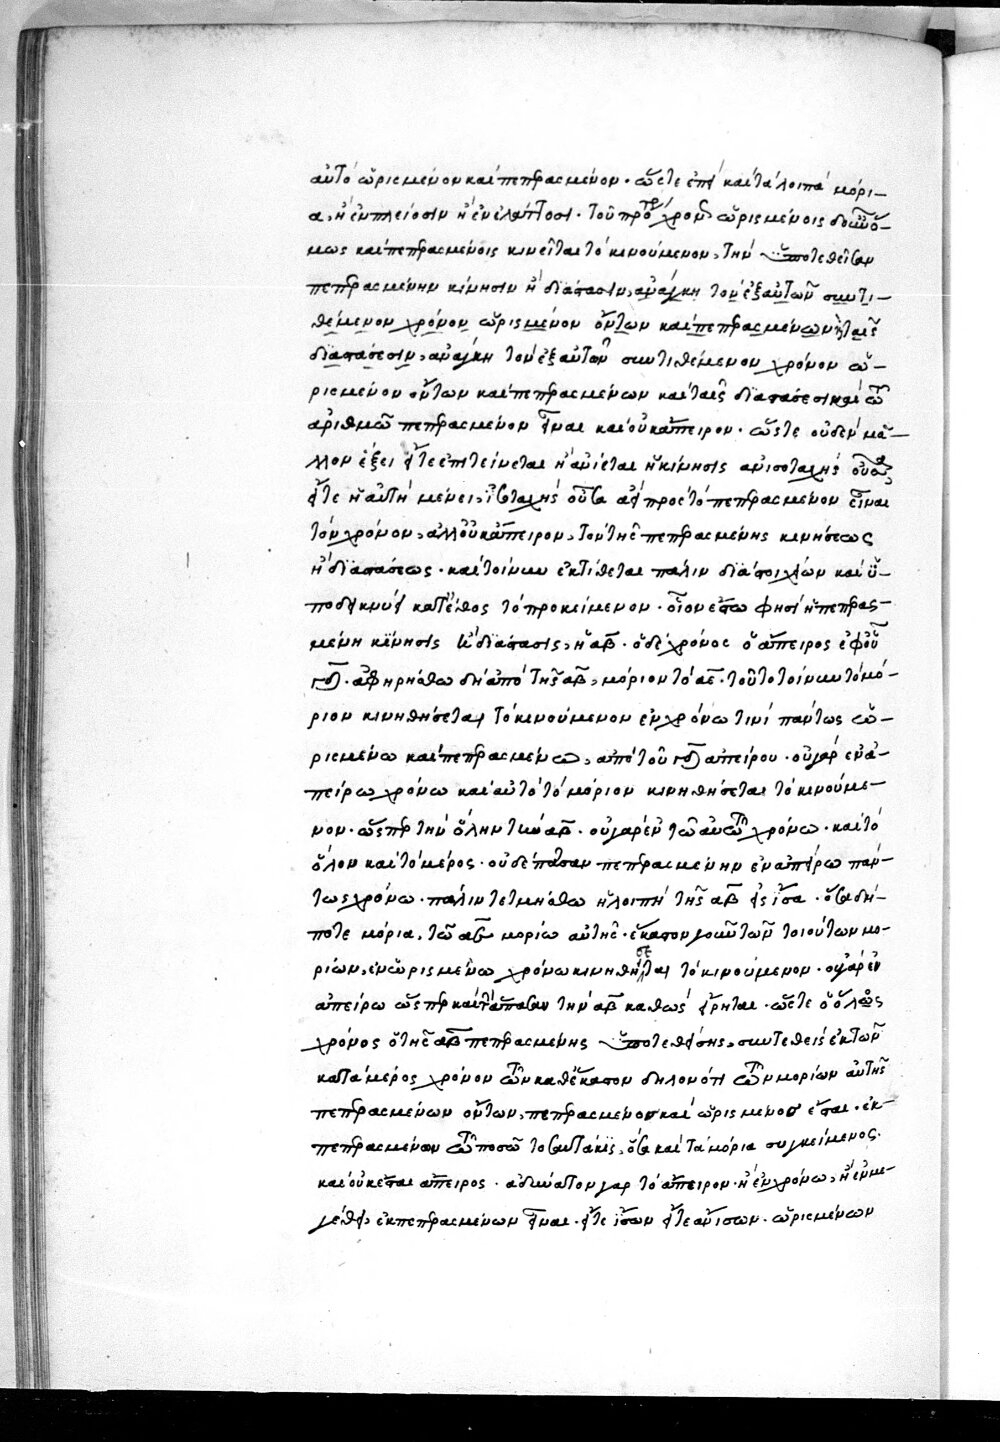 αὐτὸ ὡρισμένον καὶ πεπερασμένον· ὥστε ἐπεὶ καὶ τὰ λοιπὰ μόρι-
α, ἢ ἐν πλείοσιν ἢ ἐν ἐλάττοσι· τοῦ πρώτου χρόνου ὡρισμένοις δ' οὖν ὅ-
μως καὶ πεπερασμένοις κινεῖται τὸ κινούμενον, τὴν ὑποτεθεῖσαν
πεπερασμένην κίνησιν ἢ διάστασιν, ἀνάγκη τὸν ἐξ αὐτῶν συντι-
θέμενον χρόνον ὡρισμένον ὄντων καὶ πεπερασμένων ἢ ταῖς
διαστάσεσιν, ἀνάγκη τὸν ἐξ αὐτῶν συντιθέμενον χρόνον ὡ-
ρισμένον ὄντων καὶ πεπερασμένων καὶ ταῖς διαστάσεσι καὶ τῶ
ἀριθμῶ πεπερασμένον εἶναι καὶ οὐκ ἄπειρον· ὥστε οὐδὲν μᾶ-
λλον ἕξει εἴτε ἐπιτείνεται ἢ ἀνίεται ἡ κίνησις ἀνισοταχὴς οὖσα,
εἴτε ἡ αὐτὴ μένει, ἰσοταχὴς οὖσα πρὸς τὸ πεπερασμένον εἶναι
τὸν χρόνον, ἀλλ' οὐκ ἄπειρον, τὸν τῆς πεπερασμένης κινήσεως
ἢ διαστάσεως· καὶ τοίνυν ἐκτίθεται πάλιν διὰ στοιχείων καὶ ὑ-
ποδείκνυσι κατ' εἶδος τὸ προκείμενον· οἷον ἔστω φησὶ ἡ πεπερασ-
μένη κίνησις ἢ διάστασις, ἡ ΑΒ· ὁ δὲ χρόνος ὁ ἄπειρος ἐφ' οὗ
ΓΔ· ἀφηρήσθω δὴ ἀπὸ τῆς ΑΒ, μόριον τὸ ΑΕ· τοῦτο τοίνυν τὸ μό-
ριον κινηθήσεται τὸ κινούμενον ἐν χρόνω τινὶ πάντως ὡ-
ρισμένω καὶ πεπερασμένω, ἀπὸ τοῦ ΓΔ ἀπείρου· οὐ γὰρ ἐν ἀ-
πείρω χρόνω καὶ αὐτὸ τὸ μόριον κινηθήσεται τὸ κινούμε-
νον· ὥσπερ τὴν ὅλην τὴν ΑΒ· οὐ γὰρ ἐν τῶ αὐτῶ χρόνω· καὶ τὸ
ὅλον καὶ τὸ μέρος· οὐδὲ πᾶσαν πεπερασμένην ἐν ἀπείρω πάν-
τως χρόνω· πάλιν τετμήσθω ἡ λοιπὴ τῆς ΑΒ εἰς ἴσα· ὁσαδή-
ποτε μόρια, τῶ ΑΕ μορίω αὐτῆς· ἕκαστον γοῦν τῶν τοιούτων μο-
ρίων, ἐν ὡρισμένω χρόνω κινηθήσεται τὸ κινούμενον· οὐ γὰρ ἐν
ἀπείρω ὥσπερ καὶ τὴν ἅπασαν τὴν ΑΒ καθὼς εἴρηται· ὥστε ὁ ὅλος
χρόνος ὁ τῆς ΑΒ πεπερασμένης ὑποτεθείσης, συντεθεὶς ἐκ τῶν
κατὰ μέρος χρόνον τῶν καθ' ἕκαστον δηλονότι τῶν μορίων αὐτῆς
πεπερασμένων ὄντων, πεπερασμένος καὶ ὡρισμένος ἔσται· ἐκ
πεπερασμένων τῶ ποσῶ τοσαυτάκις, ὅσα καὶ τὰ μόρια συγκείμενος·
καὶ οὐκ ἔσται ἄπειρος· ἀδύνατον γὰρ τὸ ἄπειρον· ἢ ἐν χρόνω, ἢ ἐν με-
γέθει, ἐκ πεπερασμένων εἶναι· εἴτε ἴσων εἴτε ἀνίσων· ὡρισμένων